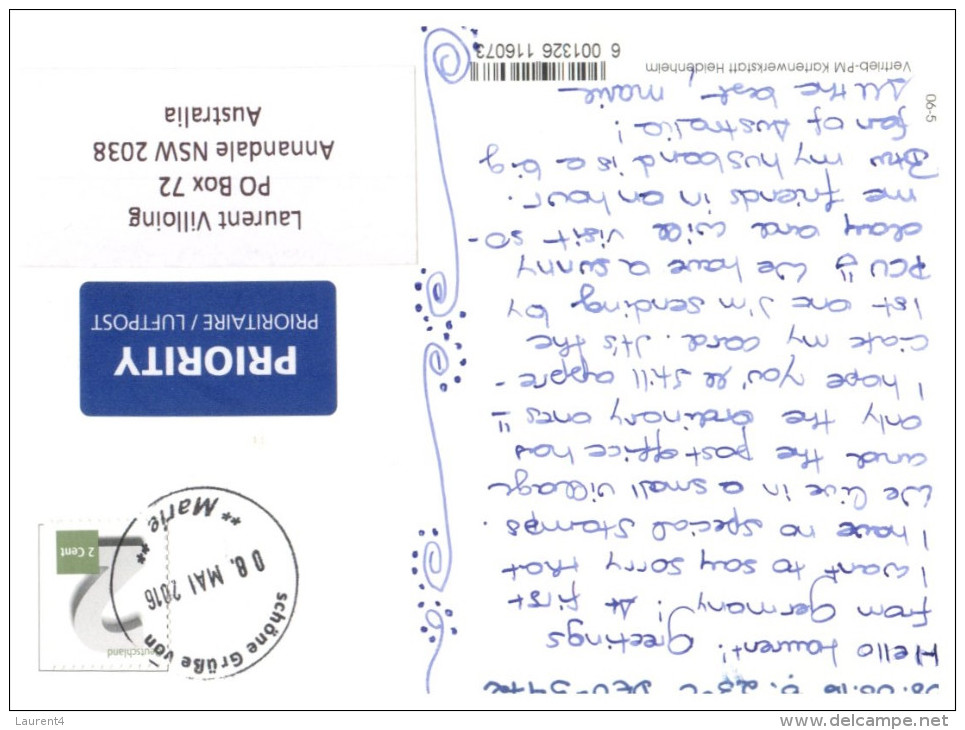 08.05.16
Hello Laurent! Greetings
from Germany! At first
I want to say sorry that
I have no special stamps.
We live in a small village
and the postoffice has
only the ordinary ones
I hope you'll still appre-
ciate my card. It's the
1st one I'm sending by
PCU We have a sunny
day and will visit so-
me friends in an hour.
Btw my husband is a big
fan of Australia!
All the best, Marie
06-5
Vertrieb-PM Kartenwerkstatt Heidenheim
6 001326 116073
Deutschland
2 Cent
schöne Grüße von
08. MAI 2016
** Marie **
PRIORITY
PRIORITAIRE / LUFTPOST
Laurent Villoing
PO Box 72
Annandale NSW 2038
Australia
Laurent4
www.delcampe.net